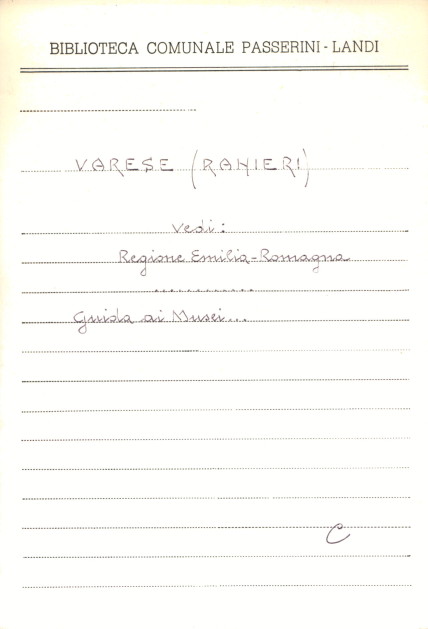 BIBLIOTECA COMUNALE PASSERINI - LANDI
VARESE (RANIERI)
vedi:
Regione Emilia-Romagna
............
Guida ai Musei...
C